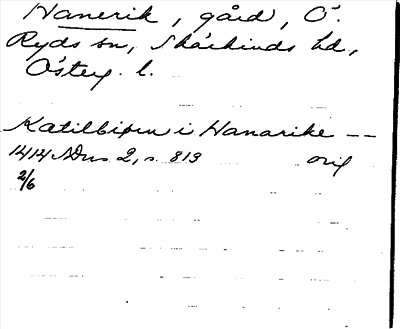 Hanerik, gård, Ö.
Ryds sn, Skärkinds hd,
Österg. l.
Katilbiørn i Hanarike --
1414 SDns 2, s. 813 orig
2/6